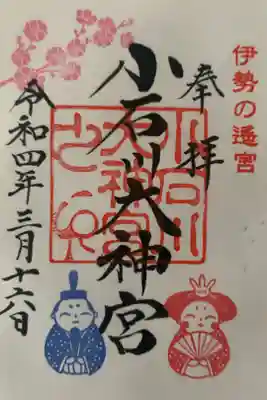 伊勢の遙宮
奉拝
小石川大神宮
令和四年三月十六日